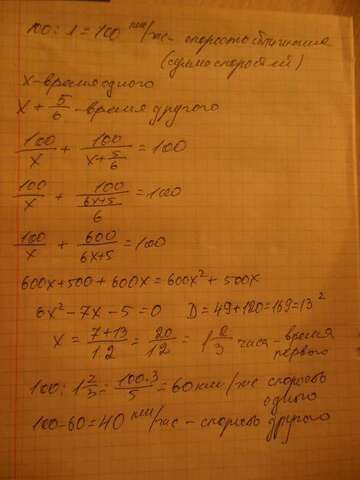 100 : 1 = 100 км/час - скорость сближения
(сумма скоростей)
x - время одного
x + 5/6 - время другого
100/x + 100/(x + 5/6) = 100
100/x + 100/((6x+5)/6) = 100
100/x + 600/(6x+5) = 100
600x + 500 + 600x = 600x² + 500x
6x² - 7x - 5 = 0 D = 49 + 120 = 169 = 13²
x = (7+13)/12 = 20/12 = 1 2/3 часа - время первого
100 : 1 2/3 = 100·3/5 = 60 км/час скорость одного
100 - 60 = 40 км/час - скорость другого